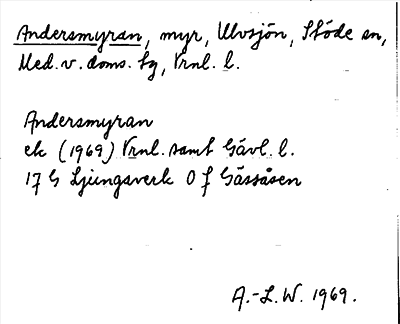 Andersmyran, myr, Ulvsjön, Stöde sn,
Med. v. doms. tg, Vrnl. l.
Andersmyran
ek (1969) Vrnl. samt Gävl. l.
17 G Ljungaverk 0 f Gåssåsen
A.-L.W. 1969.